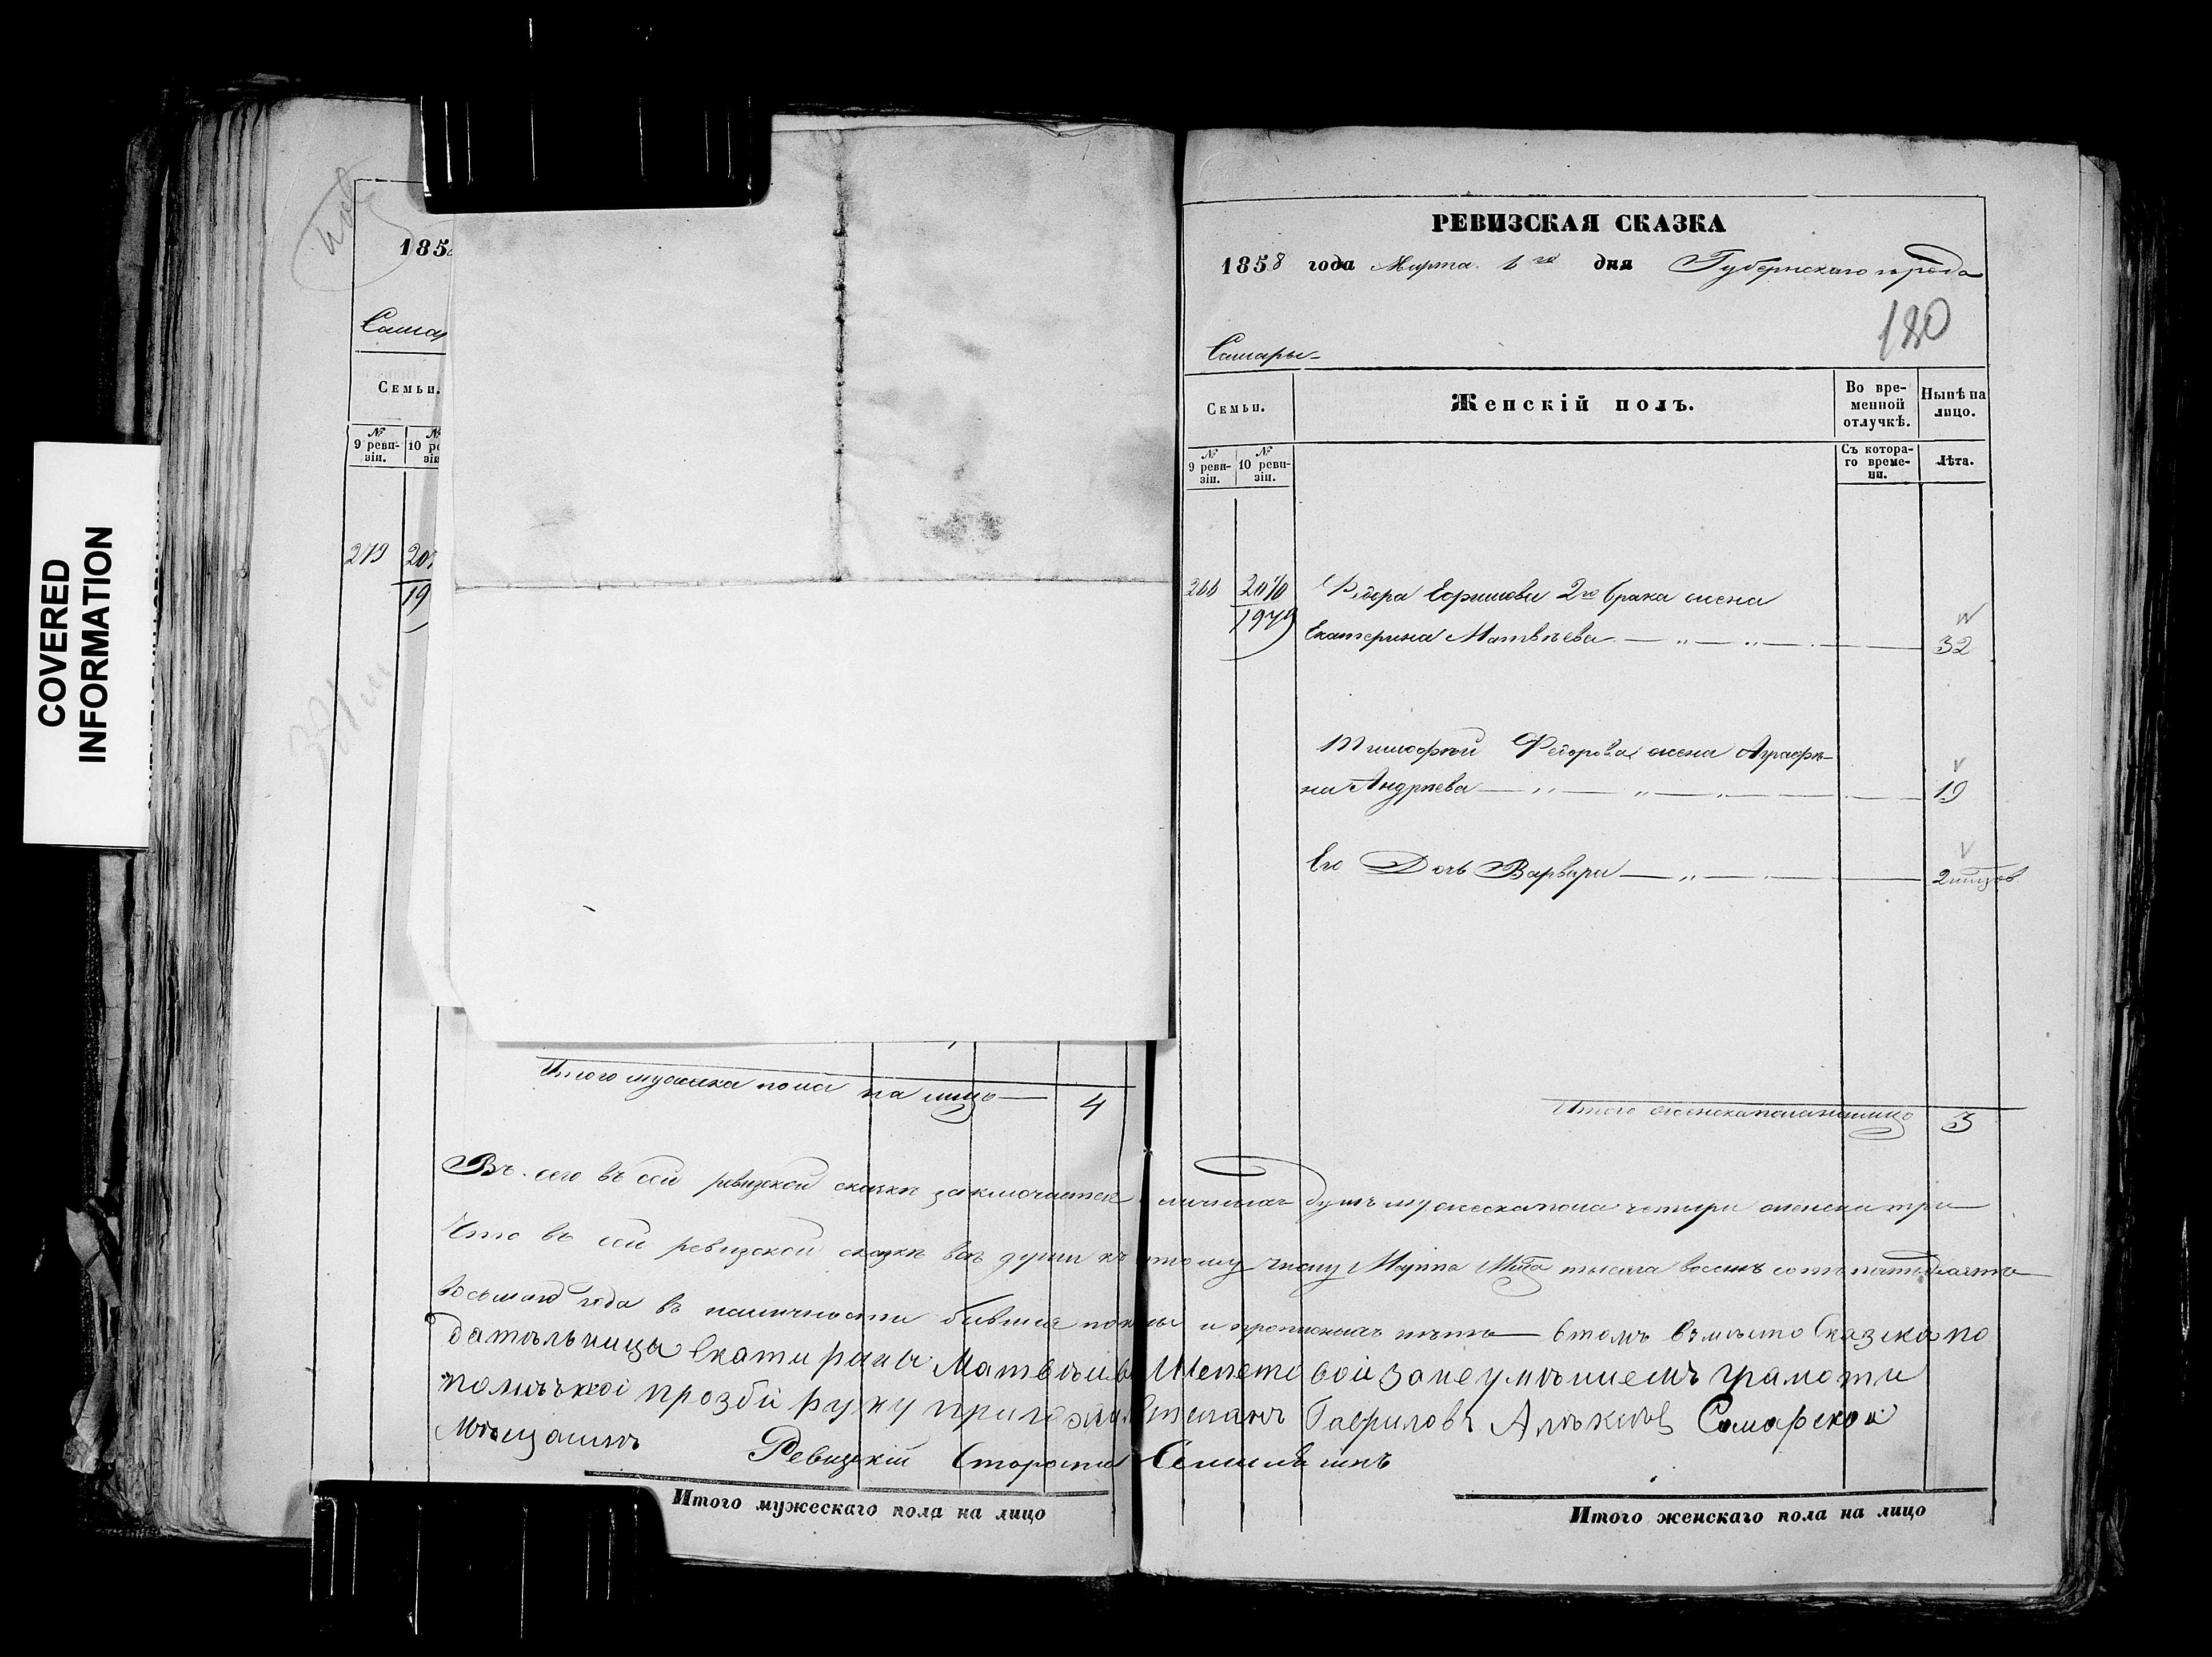 COVERED
INFORMATION
185
Самар
Семьи.
№ 9 реви-зіи.
№ 10 ре зіи
279
19
Итого мужеска пола на лицо — 4
РЕВИЗСКАЯ СКАЗКА
1858 года Марта 1го дня Губернскаго города
180
Самары
Семьи.
Женскій полъ.
Во вре-менной отлучкѣ.
Нынѣ на лицо.
№ 9 реви-зіи.
№ 10 реви-зіи.
Съ котора-го време-ни.
Лѣта.
Федора Ефимова 2го брака жена
Екатерина Матвѣева 32
Тимофей Федорова жена Аграфе-
на Андреева 19
Его Дочь Варвара
Итого женска пола на лицо 3
Въ сего въ сей ревизской сказкѣ заключается личныхъ душъ мужеска пола четыре женска три
Что въ сей ревизской сказкѣ всѣ души къ числу Марта тысяча восемь сотъ пятьдесятъ
восьмаго года въ наличности бывшія и прописныхъ нѣтъ втомъ вмѣсто Сказкопо
дательницы Екатирины Матвѣивы Шепети вой занеумѣниемъ грамоти
прозби руку приложилъ Степанъ Гавриловъ Самарской
Мѣщанинъ Ревизскій Староста
Итого мужескаго пола на лицо
Итого женскаго пола на лицо